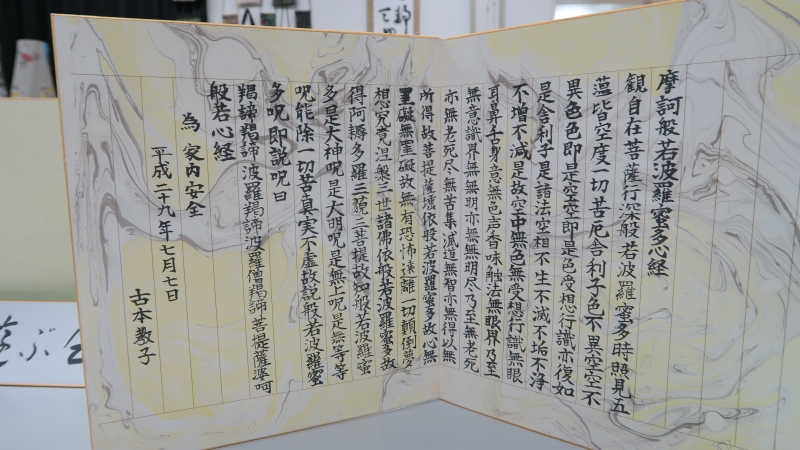 摩訶般若波羅蜜多心経
観自在菩薩行深般若波羅蜜多時照見五
蕴皆空度一切苦厄舎利子色不異空空不
異色色即是空空即是色受想行識亦復如
是舎利子是諸法空相不生不滅不垢不浄
不増不減是故空中無色無受想行識無眼
耳鼻舌身意無色声香味触法無眼界乃至
無意識界無無明亦無無明尽乃至無老死
亦無老死尽無苦集滅道無智亦無得以無
所得故菩提薩埵依般若波羅蜜多故心無
罣礙無罣礙故無有恐怖遠離一切顛倒夢
想究竟涅槃三世諸佛依般若波羅蜜多故
得阿耨多羅三藐三菩提故知般若波羅蜜
多是大神呪是大明呪是無上呪是無等等
呪能除一切苦真実不虚故説般若波羅蜜
多呪即説呪曰
羯諦羯諦波羅羯諦波羅僧羯諦菩提薩婆呵
般若心経
為 家内安全
平成二十九年七月七日
古本教子